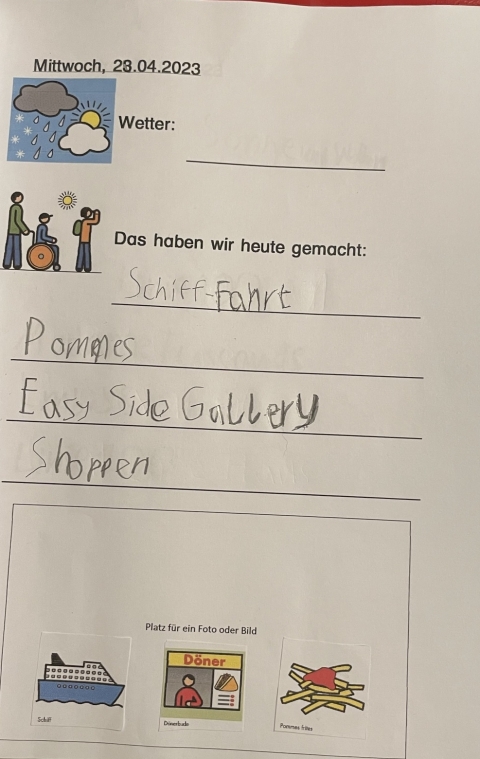 Mittwoch, 28.04.2023
Wetter:
Das haben wir heute gemacht:
Schiff-Fahrt
Pommes
Easy Side Gallery
Shoppen
Platz für ein Foto oder Bild
Döner
Schiff
Dönerbude
Pommes frites